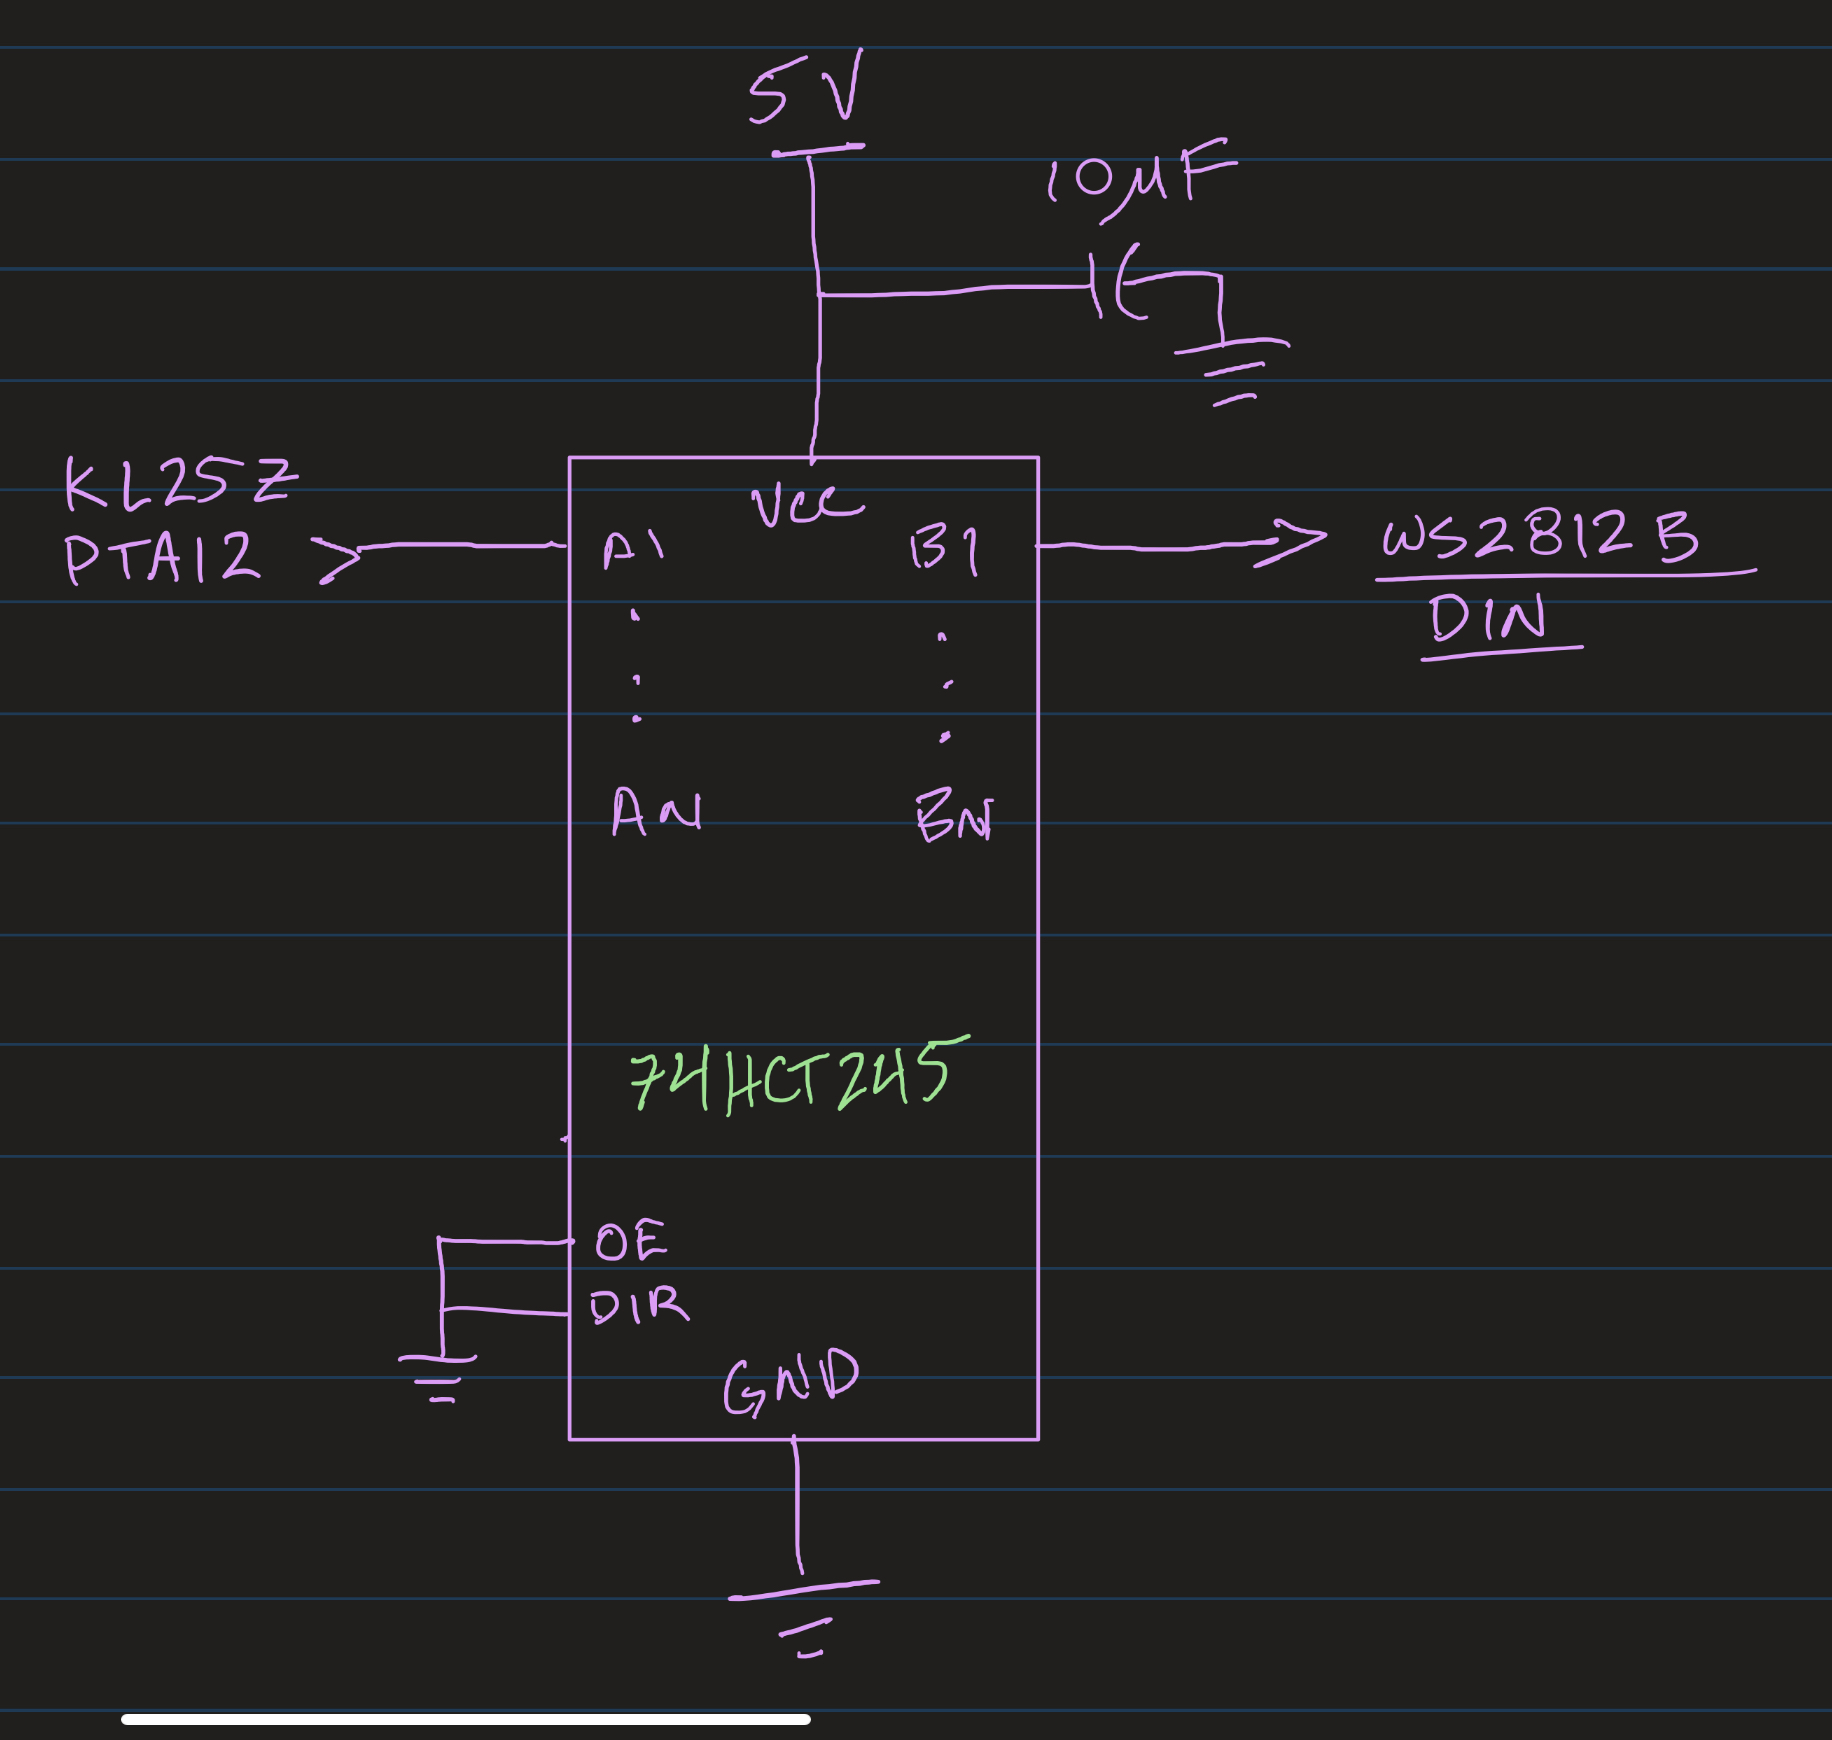 5V
10µF
KL25Z
PTA12
VCC
A1
B1
WS2812B
DIN
AN
BN
74HCT245
OE
DIR
GND